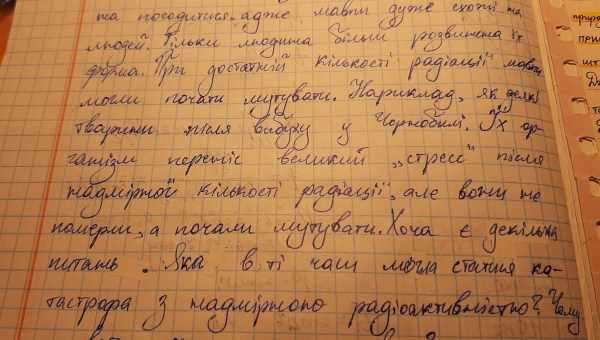 та погодитися. адже мавпи дуже схожі на
людей. Тільки людина більш розвинена їх
форма. При достатній кількості радіації мавпи
могли почати мутувати. Наприклад, як деякі
тварини після вибуху у Чорнобилі. Їх ор-
ганізм переніс великий „стресс" після
надмірної кількості радіації, але вони не
померли, а почали мутувати. Хоча є декілька
питань. Яка в ті часи могла статися ка-
тастрофа з надмірною радіоактивністю? Чому